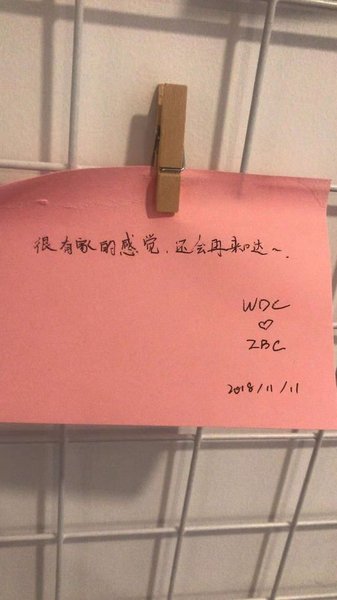 很有家的感觉.还会再来哒~.
WDC
♡
ZBC
2018/11/11